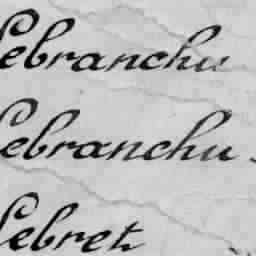 Lebranchu
Lebranchu
Lebret